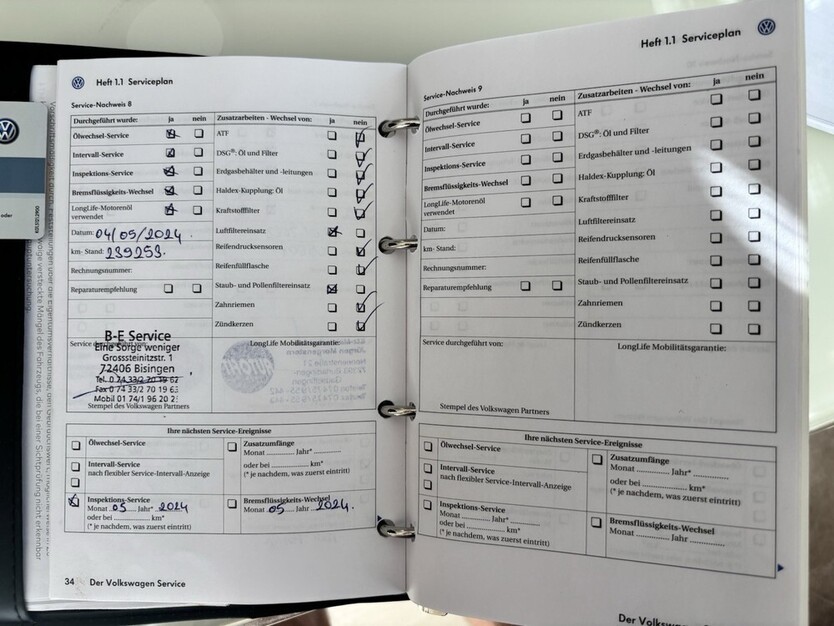 Heft 1.1 Serviceplan
Service-Nachweis 8
Durchgeführt wurde: ja nein
Ölwechsel-Service
Intervall-Service
Inspektions-Service
Bremsflüssigkeits-Wechsel
LongLife-Motorenöl
verwendet
Datum: 04/05/2024
km- Stand: 239253.
Rechnungsnummer:
Reparaturempfehlung
Zusatzarbeiten - Wechsel von: ja nein
ATF
DSG®: Öl und Filter
Erdgasbehälter und -leitungen
Haldex-Kupplung: Öl
Kraftstofffilter
Luftfiltereinsatz
Reifendrucksensoren
Reifenfüllflasche
Staub- und Pollenfiltereinsatz
Zahnriemen
Zündkerzen
B-E Service
Eine Sorge weniger
Grosssteinitzstr. 1
72406 Bisingen
Tel. 0 74 33/2 70 19 62
Fax 0 74 33/2 70 19 63
Mobil 01 74/1 96 20 2
Stempel des Volkswagen Partners
LongLife Mobilitätsgarantie:
Ihre nächsten Service-Ereignisse
Ölwechsel-Service
Intervall-Service
nach flexibler Service-Intervall-Anzeige
Inspektions-Service
Monat 05 Jahr* 2024
oder bei ............ km*
(* je nachdem, was zuerst eintritt)
Zusatzumfänge
Monat ............ Jahr* ............
oder bei ............ km*
(* je nachdem, was zuerst eintritt)
Bremsflüssigkeits-Wechsel
Monat 05 Jahr 2024.
34 Der Volkswagen Service
Heft 1.1 Serviceplan
Service-Nachweis 9
Durchgeführt wurde: ja nein
Ölwechsel-Service
Intervall-Service
Inspektions-Service
Bremsflüssigkeits-Wechsel
LongLife-Motorenöl
verwendet
Datum:
km- Stand:
Rechnungsnummer:
Reparaturempfehlung
Zusatzarbeiten - Wechsel von: ja nein
ATF
DSG®: Öl und Filter
Erdgasbehälter und -leitungen
Haldex-Kupplung: Öl
Kraftstofffilter
Luftfiltereinsatz
Reifendrucksensoren
Reifenfüllflasche
Staub- und Pollenfiltereinsatz
Zahnriemen
Zündkerzen
Service durchgeführt von:
Stempel des Volkswagen Partners
LongLife Mobilitätsgarantie:
Ihre nächsten Service-Ereignisse
Ölwechsel-Service
Intervall-Service
nach flexibler Service-Intervall-Anzeige
Inspektions-Service
Monat ............ Jahr* ............
oder bei ............ km*
(* je nachdem, was zuerst eintritt)
Zusatzumfänge
Monat ............ Jahr* ............
oder bei ............ km*
(* je nachdem, was zuerst eintritt)
Bremsflüssigkeits-Wechsel
Monat ............ Jahr ............